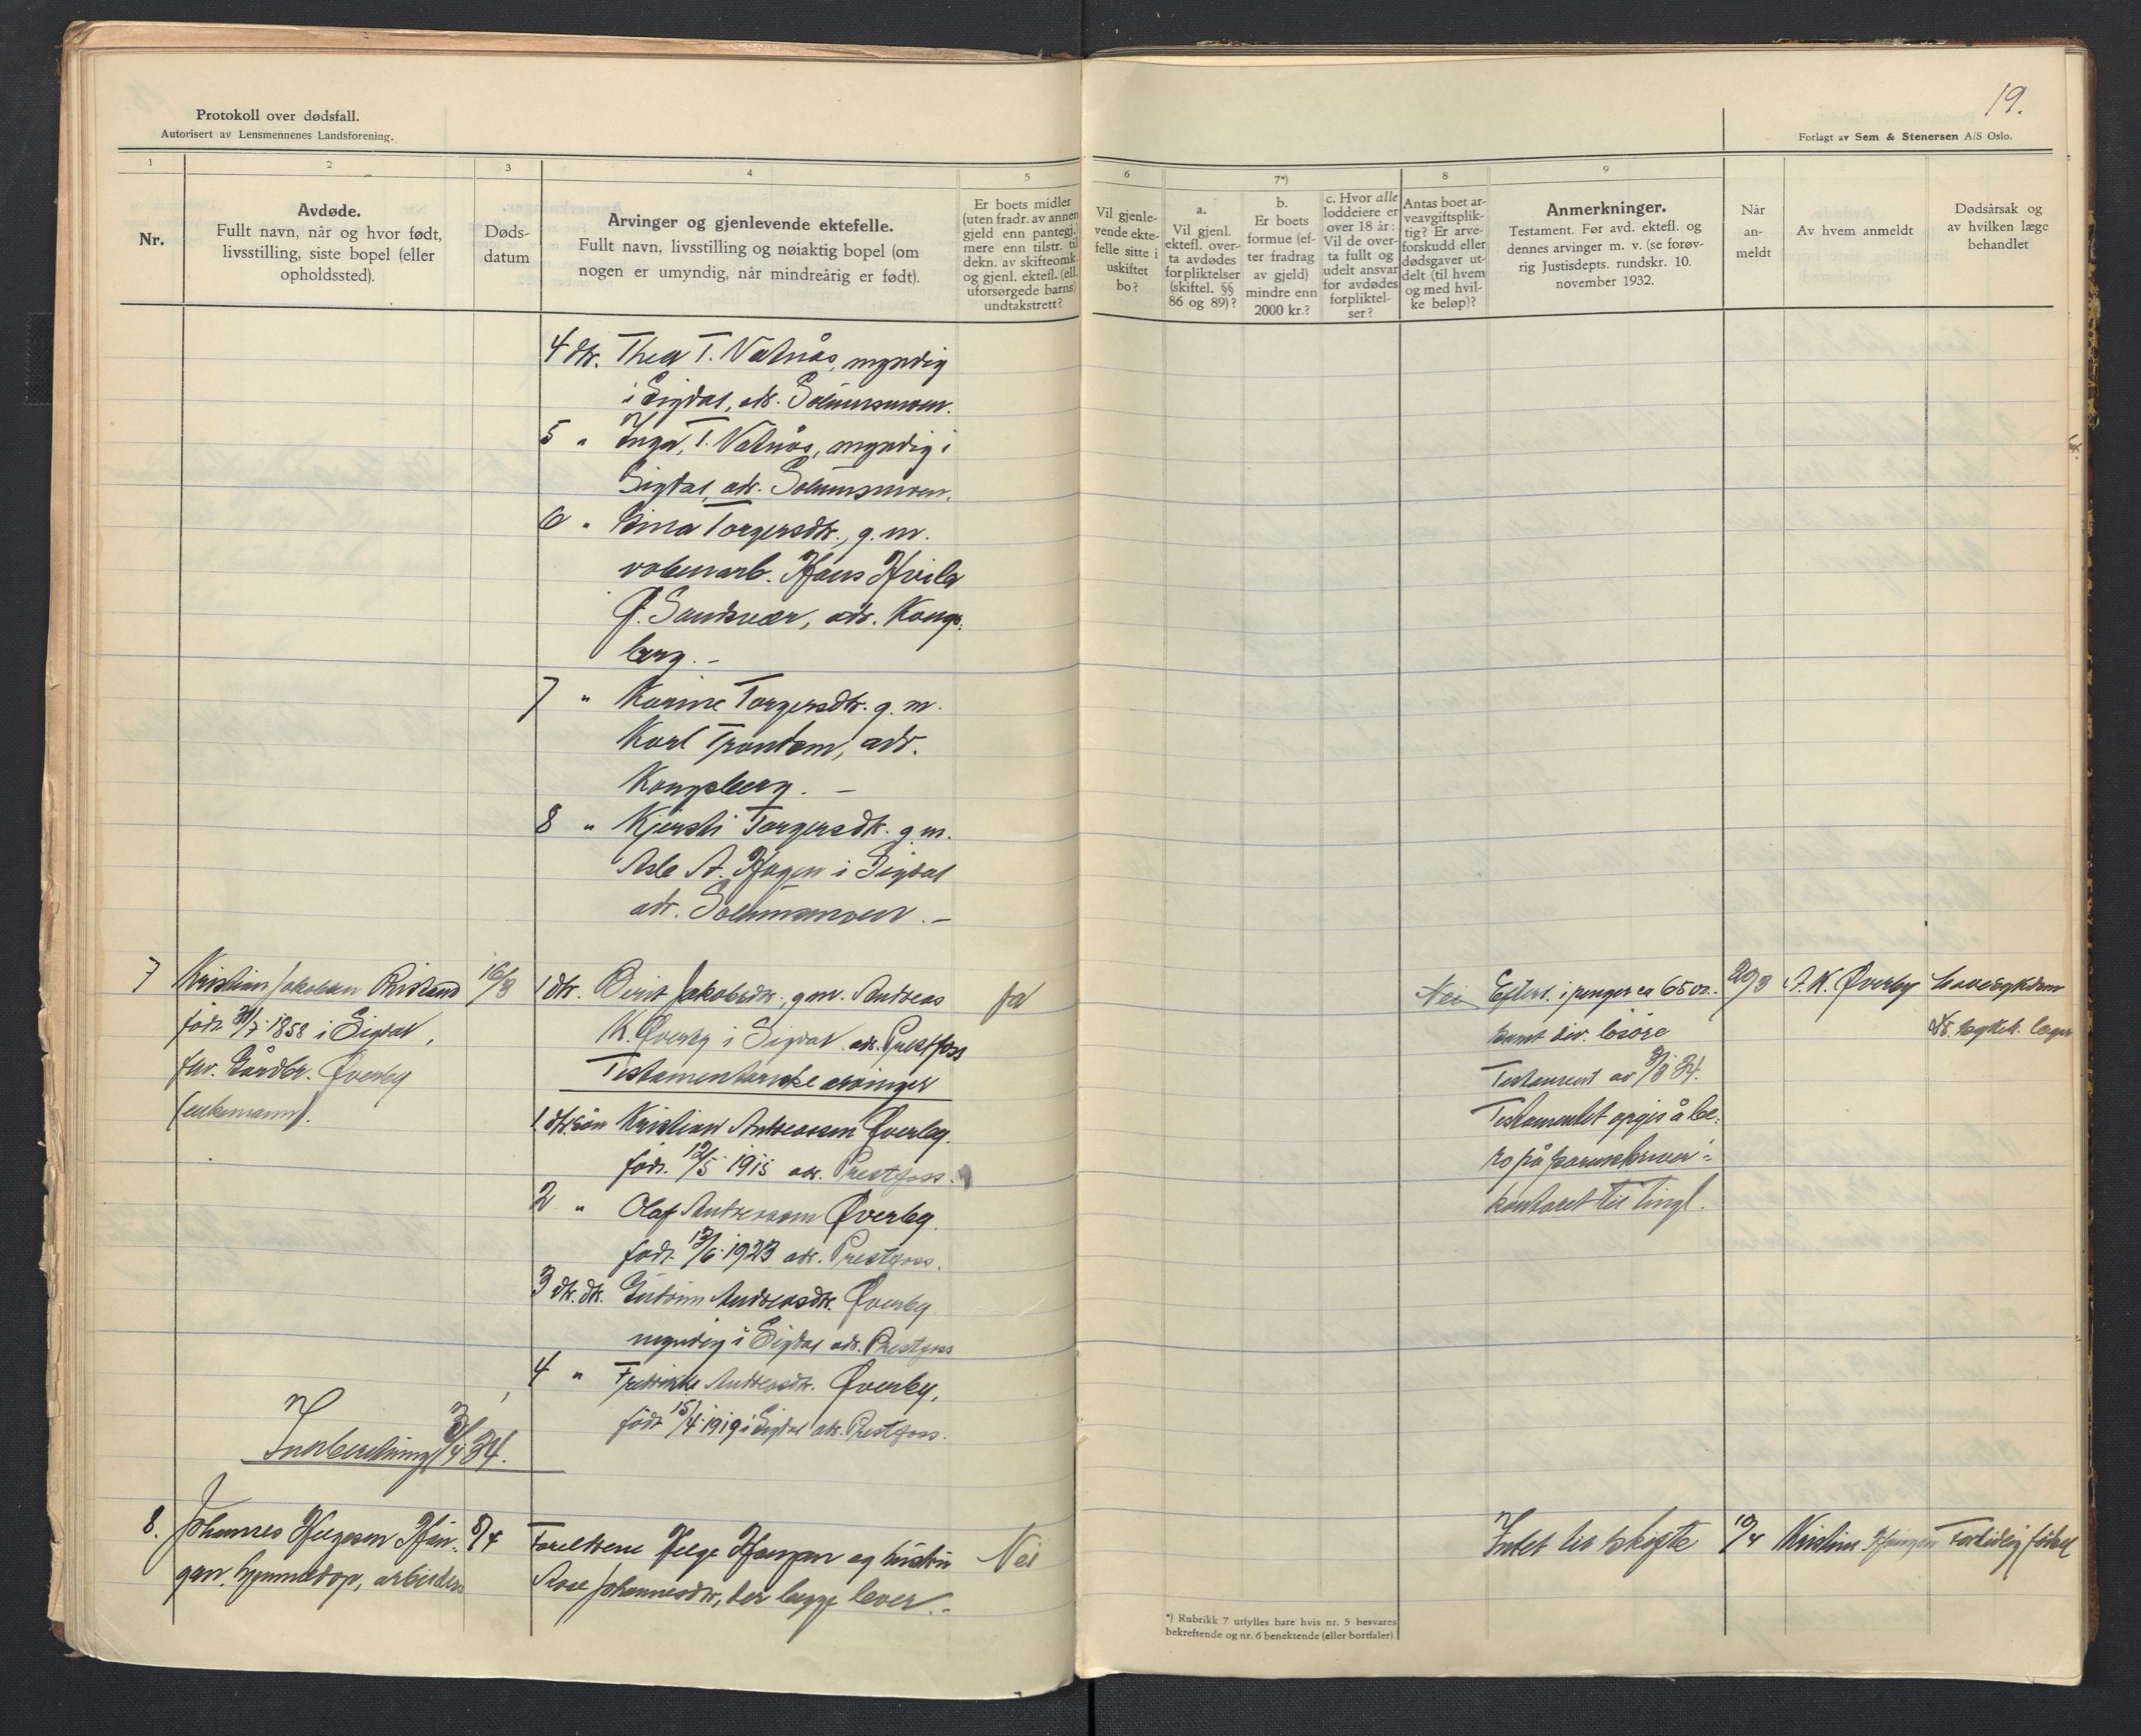 19.
Protokoll over dødsfall.
Autorisert av Lensmennenes Landsforening.
Forlagt av Sem & Stenersen A/S Oslo.
1
2
3
4
5
6
7*)
8
9
Nr.
Avdøde.
Fullt navn, når og hvor født,
livsstilling, siste bopel (eller
opholdssted).
Døds-
datum
Arvinger og gjenlevende ektefelle.
Fullt navn, livsstilling og nøiaktig bopel (om
nogen er umyndig, når mindreårig er født).
Er boets midler
(uten fradr. av annen
gjeld enn pantegj.)
mere enn tilstr. til
dekn. av skifteomk.
og gjenl. ektefl. (ell.
uforsørgede barns)
undtakstrett?
Vil gjenle-
vende ekte-
felle sitte i
uskiftet
bo?
a.
Vil gjenl.
ektefl. over-
ta avdødes
forpliktelser
(skiftel. §§
86 og 89)?
b.
Er boets
formue (ef-
ter fradrag
av gjeld)
mindre enn
2000 kr.?
c. Hvor alle
loddeiere er
over 18 år:
Vil de over-
ta fullt og
udelt ansvar
for avdødes
forpliktel-
ser?
Antas boet ar-
veavgiftsplik-
tig? Er arve-
forskudd eller
dødsgaver ut-
delt (til hvem
og med hvil-
ke beløp)?
Anmerkninger.
Testament. Før avd. ektefl. og
dennes arvinger m. v. (se forøv-
rig Justisdepts. rundskr. 10.
november 1932.
Når
an-
meldt
Av hvem anmeldt
Dødsårsak og
av hvilken læge
behandlet
4 dtr. Thea T. Vatnås, myndig
i Sigdal, adr. Solumsmoen.
5 " Inga T. Vatnås, myndig i
Sigdal, adr. Solumsmoen.
6 " Gina Torgersdtr., g. m.
våbenarb. Hans Hvila
Ø. Sandsvær, adr. Kongs-
berg. –
7 " Karine Torgersdtr. g. m.
Karl Trondem, adr.
Kongsberg. –
8 " Kjersti Torgersdtr. g. m.
Asle A. Hagen i Sigdal
adr. Solumsmoen. –
7 Kristian Jakobsen 16/3 1 dtr. Berit Jakobsdtr., g.m. Andreas ja Nei Efterl. i penger ca 650.. 20/3 A. K. Øverby
født 1858 i Sigdal, K. Øverby i Sigdal adr. Prestfoss samt div. løsøre
fhv. Gårdbr. Øverby Testamentariske arvinger Testament av 34.
(enkemann). 1. dtr.søn Kristian Andreassen Øverby. Testamentet opgis å be-
født 12/5 1915 adr. Prestfoss. ro på sorenskriver-
2 " Olaf Andreassen Øverby. kontoret til tingl.
født 13/6 1923 adr. Prestfoss.
3 dtr. dtr. Andreasdtr. Øverby
myndig i Sigdal adr. Prestfoss
4 " Fredrikke Andreasdtr. Øverby,
født 15/4 1919 i Sigdal adr. Prestfoss.
Innberetning 3/4 34.
8. Johannes Helgesen 8/4 Foreldrene Helge og hustru Nei Intet til skifte 10/4 Kristine For tidlig født
arbeiders Johannesdtr, der begge lever. –
*) Rubrikk 7 utfylles bare hvis nr. 5 besvares
bekreftende og nr. 6 benektende (eller bortfaler)